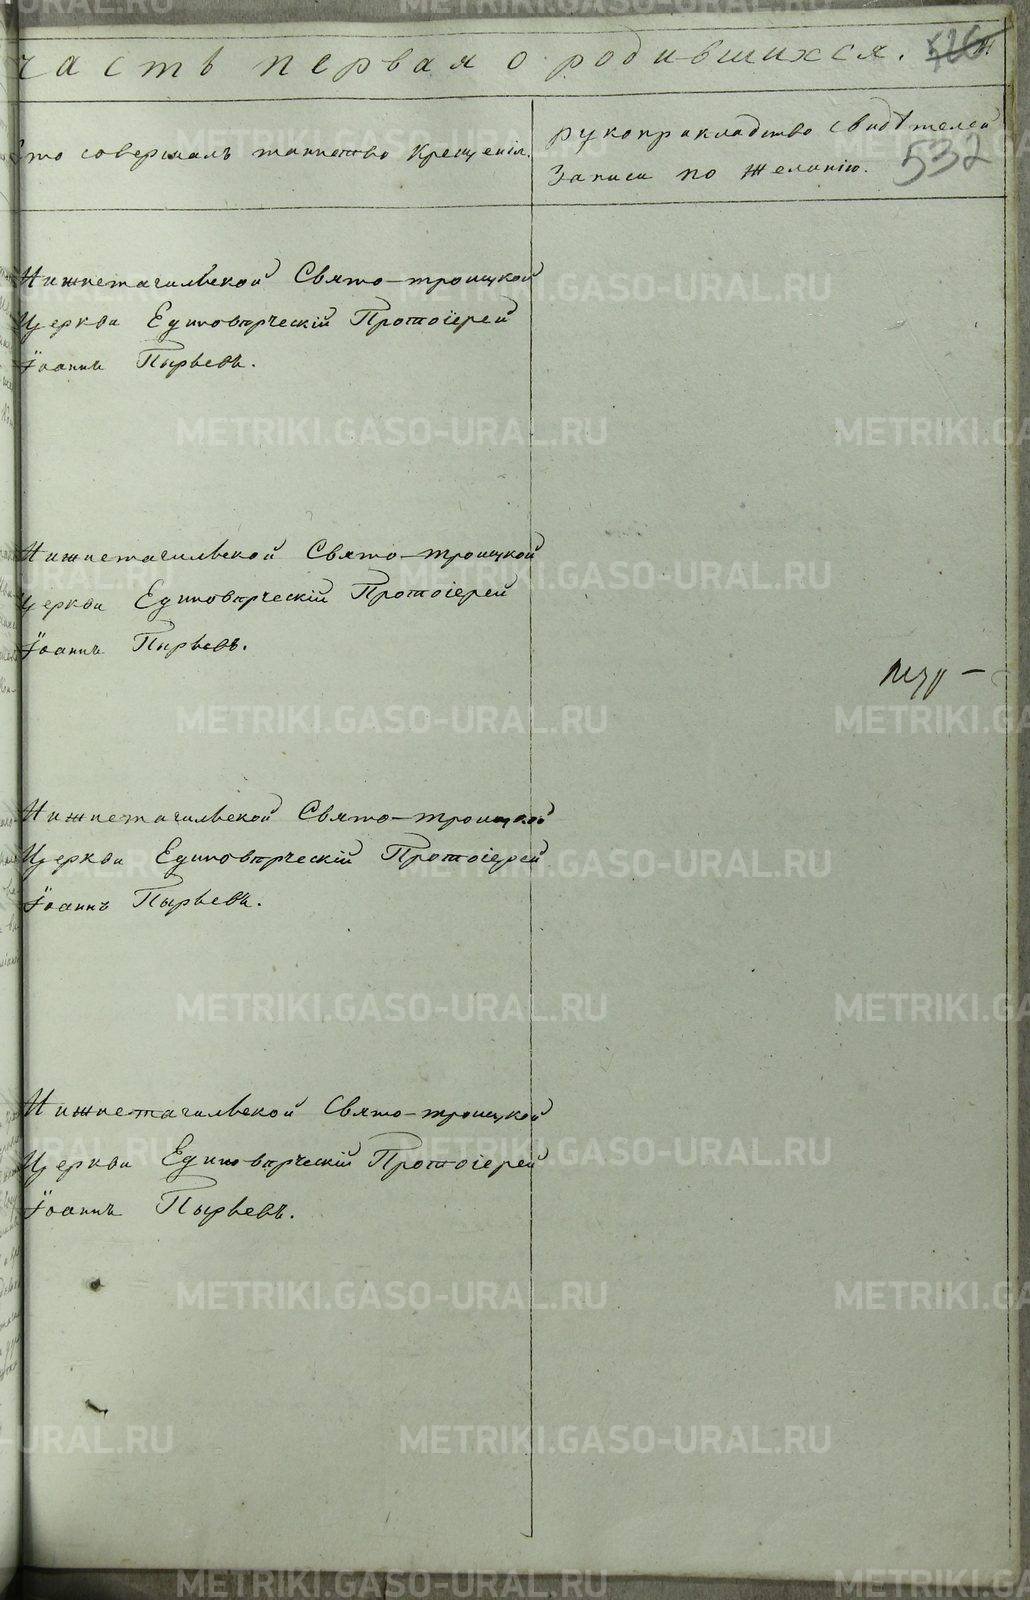 часть первая о родившихся.
532
Кто совершалъ таинство Крещенія.
рукоприкладство свидѣтелей
Записи по желанію.
Нижнетагильской Свято-троицкой
Церкви Единовѣрческій Протоіерей
Іоаннъ Пырьевъ.
Нижнетагильской Свято-троицкой
Церкви Единовѣрческій Протоіерей
Іоаннъ Пырьевъ.
Нижнетагильской Свято-троицкой
Церкви Единовѣрческій Протоіерей
Іоаннъ Пырьевъ.
Нижнетагильской Свято-троицкой
Церкви Единовѣрческій Протоіерей
Іоаннъ Пырьевъ.
METRIKI.GASO-URAL.RU